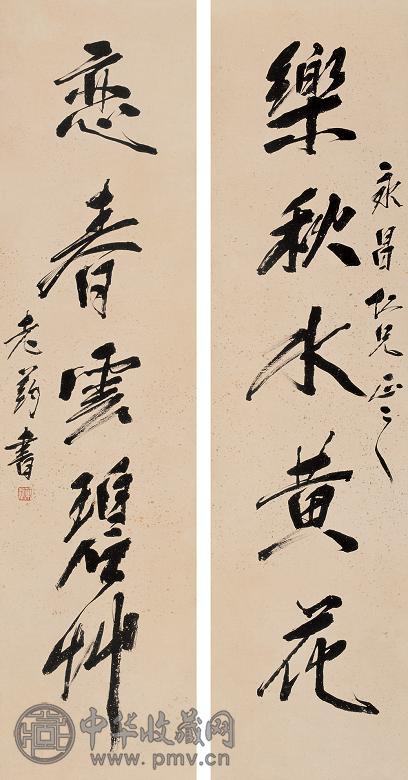 樂秋水黄花
永昌仁兄正之
恋春雲碧艸
老 書
中华收藏网
www.pmv.cn